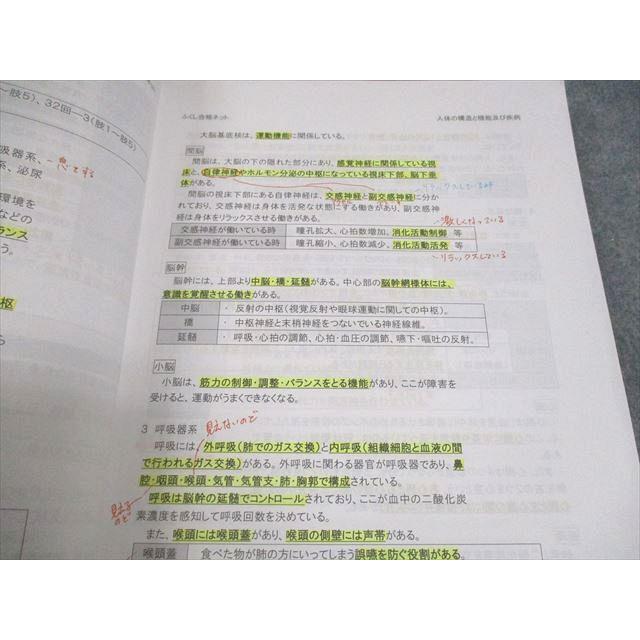 ～肢5)、32回―3(肢1～肢5)
吸器系、
系、泌尿
環境を
などの
ランス
う。
枢
ら
ふくし合格ネット
人体の構造と機能及び疾病
大脳基底核は、運動機能に関係している。
間脳
間脳は、大脳の下の隠れた部分にあり、感覚神経に関係している視
床と、自律神経やホルモン分泌の中枢になっている視床下部、脳下垂
体がある。
リラックスしている時
間脳の視床下部にある自律神経は、交感神経と副交感神経に分か
れており、交感神経は身体を活発な状態にする働きがあり、副交感神
経は身体をリラックスさせる働きがある。
激しくなっている
交感神経が働いている時 瞳孔拡大、心拍数増加、消化活動制御 等
副交感神経が働いている時 瞳孔縮小、心拍数減少、消化活動活発 等
リラックスしている
脳幹
脳幹には、上部より中脳・橋・延髄がある。中心部の脳幹網様体には、
意識を覚醒させる働きがある。
中脳 ・ 反射の中枢(視覚反射や眼球運動に関しての中枢)。
橋 ・ 中枢神経と末梢神経をつないでいる神経線維。
延髄 ・ 呼吸・心拍の調節、心拍・血圧の調節、嚥下・嘔吐の反射。
小脳
小脳は、筋力の制御・調整・バランスをとる機能があり、ここが障害を
受けると、運動がうまくできなくなる。
見えないので
3 呼吸器系
呼吸には、外呼吸(肺でのガス交換)と内呼吸(組織細胞と血液の間
で行われるガス交換)がある。外呼吸に関わる器官が呼吸器であり、鼻
腔・咽頭・喉頭・気管・気管支・肺・胸郭で構成されている。
呼吸は脳幹の延髄でコントロールされており、ここが血中の二酸化炭
素濃度を感知して呼吸回数を決めている。
また、喉頭には喉頭蓋があり、喉頭の側壁には声帯がある。
喉頭蓋 食べた物が肺の方にいってしまう誤嚥を防ぐ役割がある。